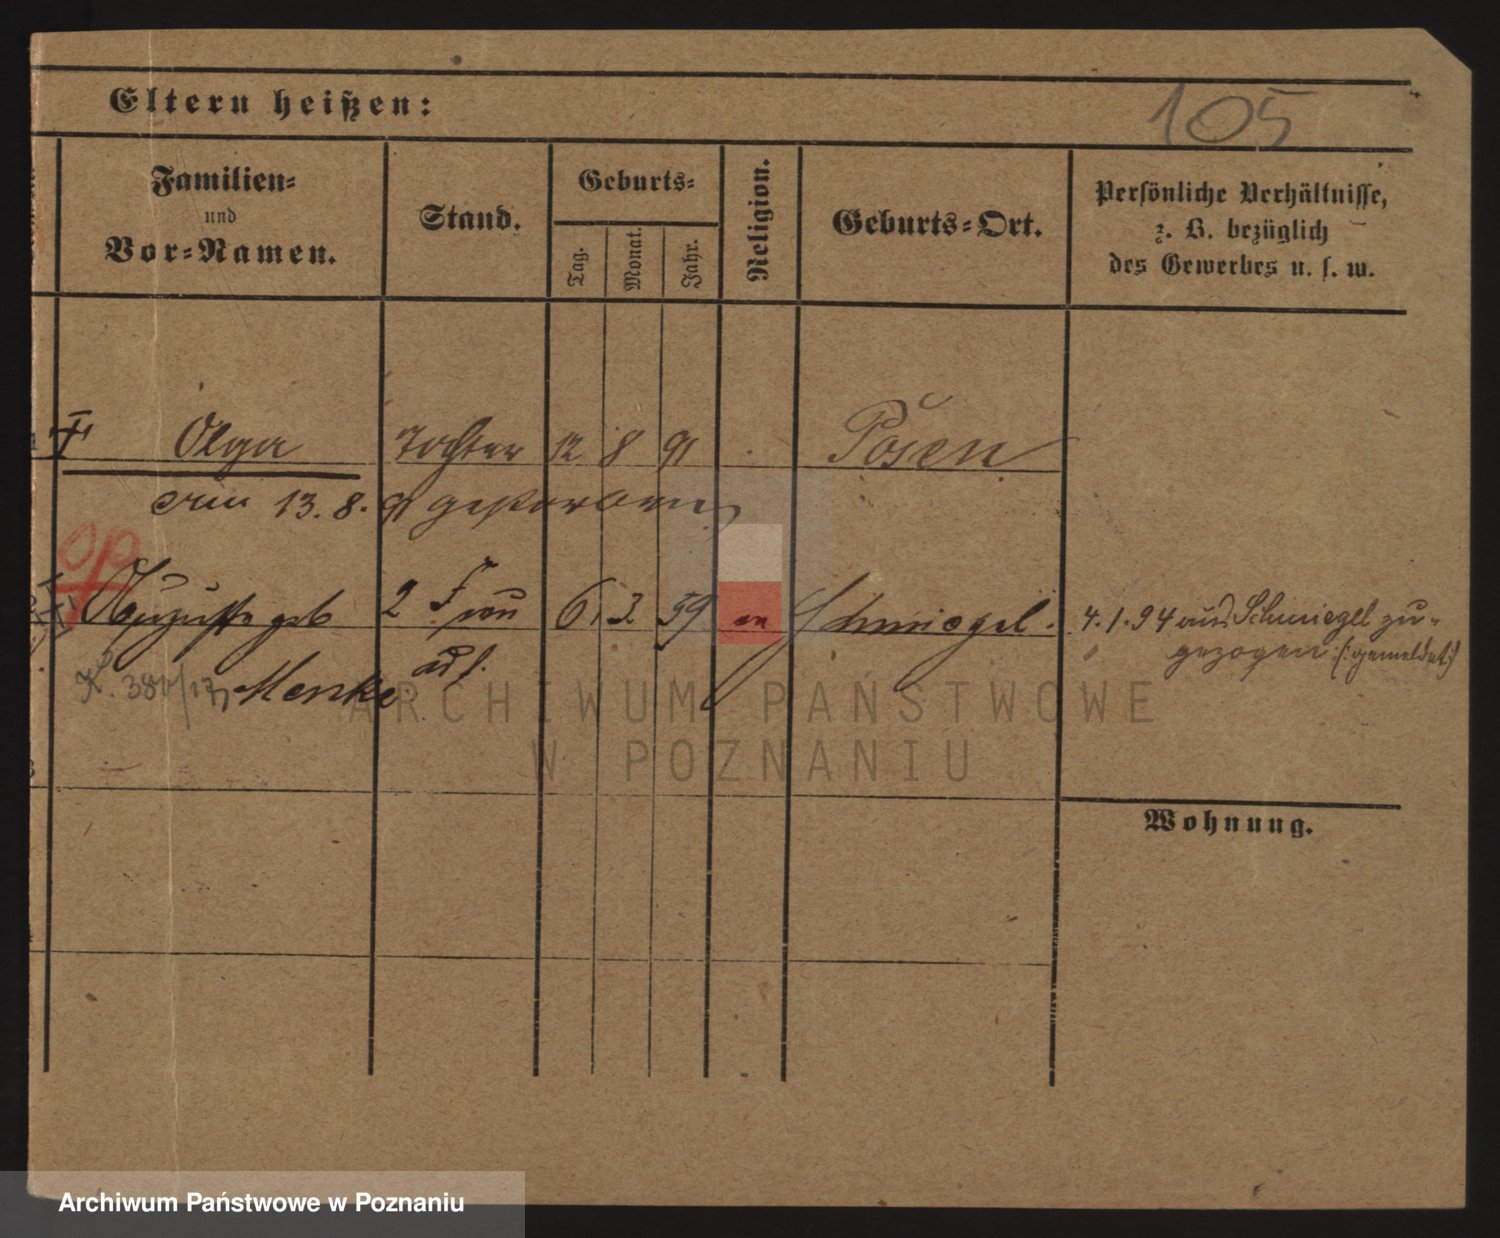 105
Eltern heißen:
Familien=
und
Vor=Namen.
Stand.
Geburts=
Tag.
Monat.
Jahr.
Religion.
Geburts=Ort.
Persönliche Verhältnisse,
z. B. bezüglich
des Gewerbes u. s. w.
Olga Tochter 12 8 91 Posen
am 13. 8. 91 gestorben
Auguste geb 2 Frau 6. 3. 59 ev Schmiegel. 4. 1. 94 aus Schmiegel zu-
gezogen (: gemeldet :)
Menke
ARCHIWUM PAŃSTWOWE
W POZNANIU
Wohnung.
Archiwum Państwowe w Poznaniu